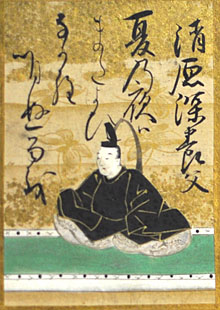 清原深養父
夏乃夜ハ
またよひ
なから
明ぬるを